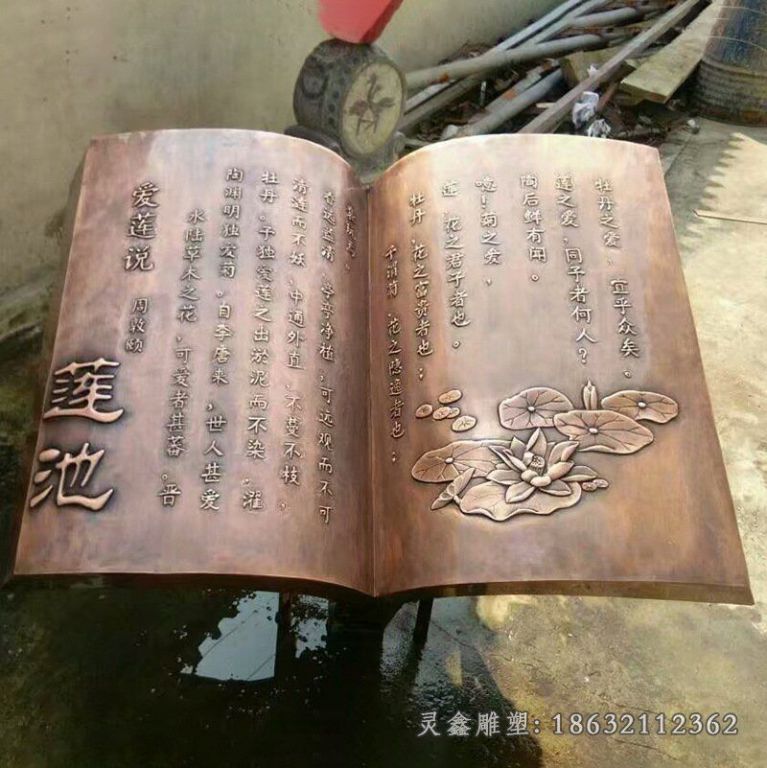 莲池
爱莲说
周敦颐
水陆草木之花，可爱者甚蕃。晋
陶渊明独爱菊。自李唐来，世人甚爱
牡丹。予独爱莲之出淤泥而不染，濯
清涟而不妖，中通外直，不蔓不枝，
香远益清，亭亭净植，可远观而不可
亵玩焉。
予谓菊，花之隐逸者也；
牡丹，花之富贵者也；
莲，花之君子者也。
噫！菊之爱，
陶后鲜有闻。
莲之爱，同予者何人？
牡丹之爱，宜乎众矣。
灵鑫雕塑: 18632112362